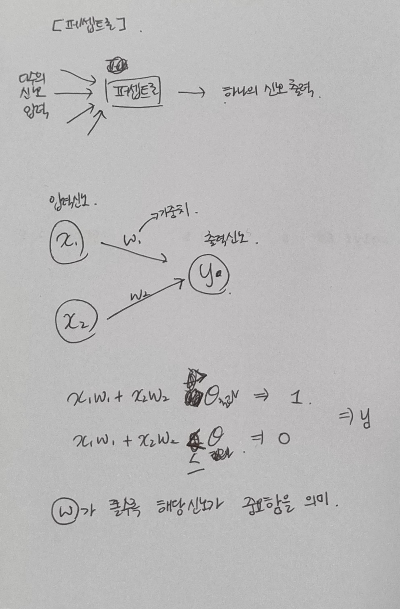 [퍼셉트론].
다수의
신호
입력
퍼셉트론
→ 하나의 신호 출력.
입력신호.
가중치.
x₁
w₁
출력신호.
y
w₂
x₂
x₁w₁ + x₂w₂ > θ ⇒ 1.
x₁w₁ + x₂w₂ ≤ θ ⇒ 0
⇒ y
w가 클수록 해당 신호가 중요함을 의미.